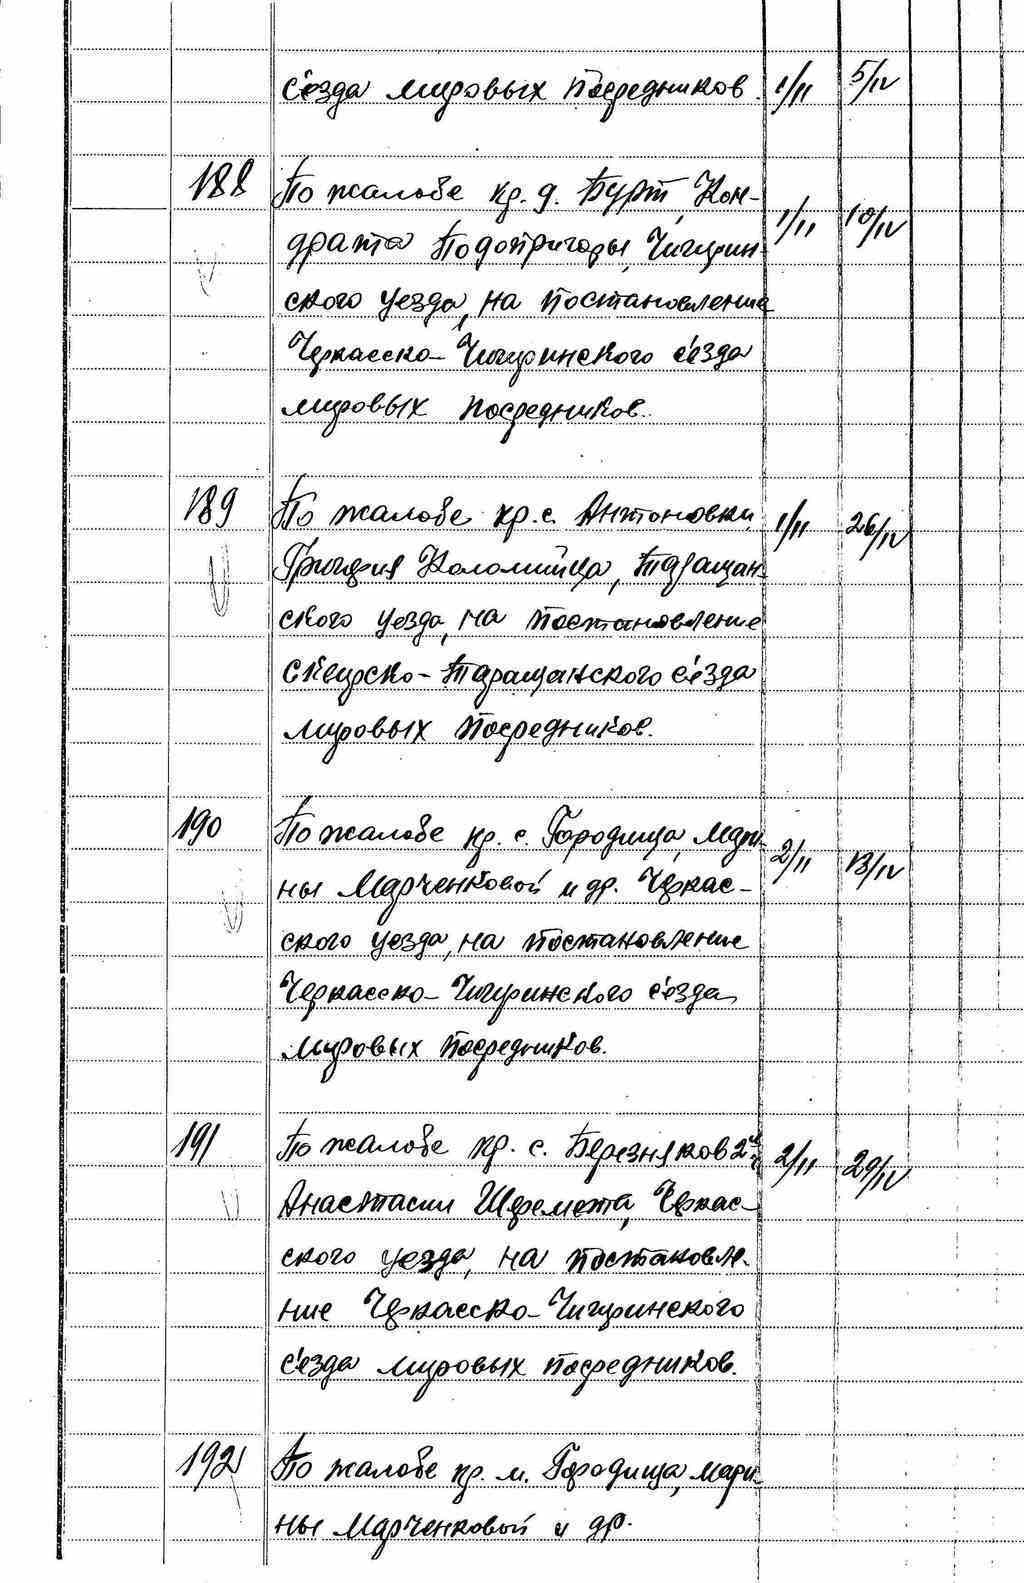 с'езда мировых посредников. 1/II 5/IV
188 По жалобе кр. д. Бурт, Кон-
драта Подопригоры, Чигирин- 1/II 10/IV
ского уезда, на постановление
Черкасско-Чигиринского с'езда
мировых посредников.
189 По жалобе кр. с. Антоновки, 1/II 26/IV
Григория Коломийца, Таращан-
ского уезда, на постановление
Сквирско-Таращанского с'езда
мировых посредников.
190 По жалобе кр. с. Городища, Мари-
ны Марченковой и др. Черкас- 2/II 13/IV
ского уезда, на постановление
Черкасско-Чигиринского с'езда
мировых посредников.
191 По жалобе кр. с. Березняков 2/II 29/IV
Анастасии Шеремета, Черкас-
ского уезда, на постановле-
ние Черкасско-Чигиринского
с'езда мировых посредников.
192 По жалобе кр. м. Городища, Мари-
ны Марченковой и др.